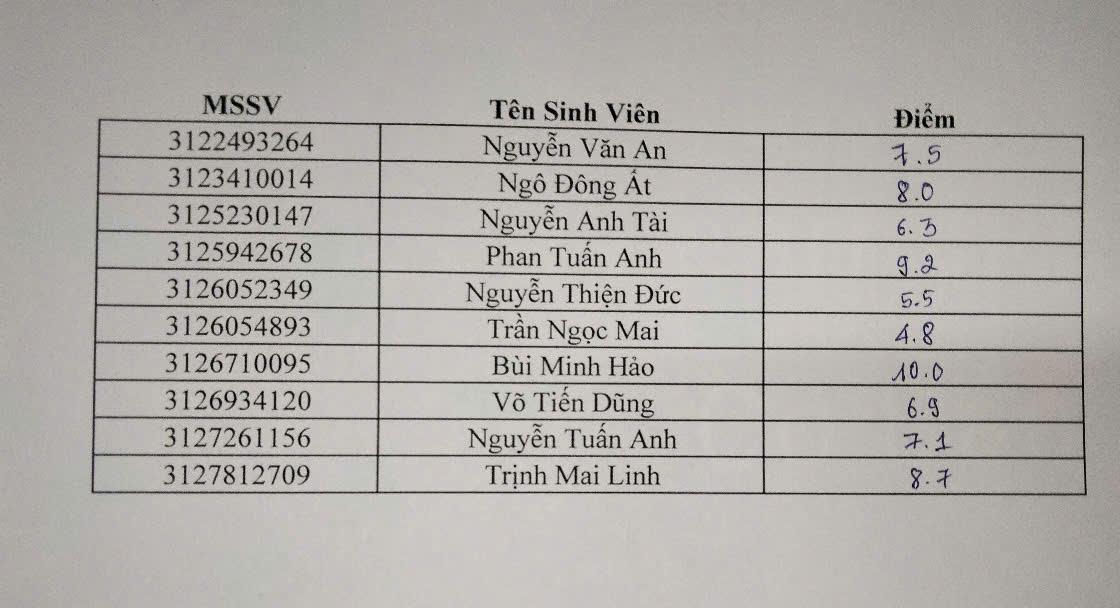 MSSV Tên Sinh Viên Điểm
3122493264 Nguyễn Văn An 7.5
3123410014 Ngô Đông Ất 8.0
3125230147 Nguyễn Anh Tài 6.3
3125942678 Phan Tuấn Anh 9.2
3126052349 Nguyễn Thiện Đức 5.5
3126054893 Trần Ngọc Mai 4.8
3126710095 Bùi Minh Hảo 10.0
3126934120 Võ Tiến Dũng 6.9
3127261156 Nguyễn Tuấn Anh 7.1
3127812709 Trịnh Mai Linh 8.7